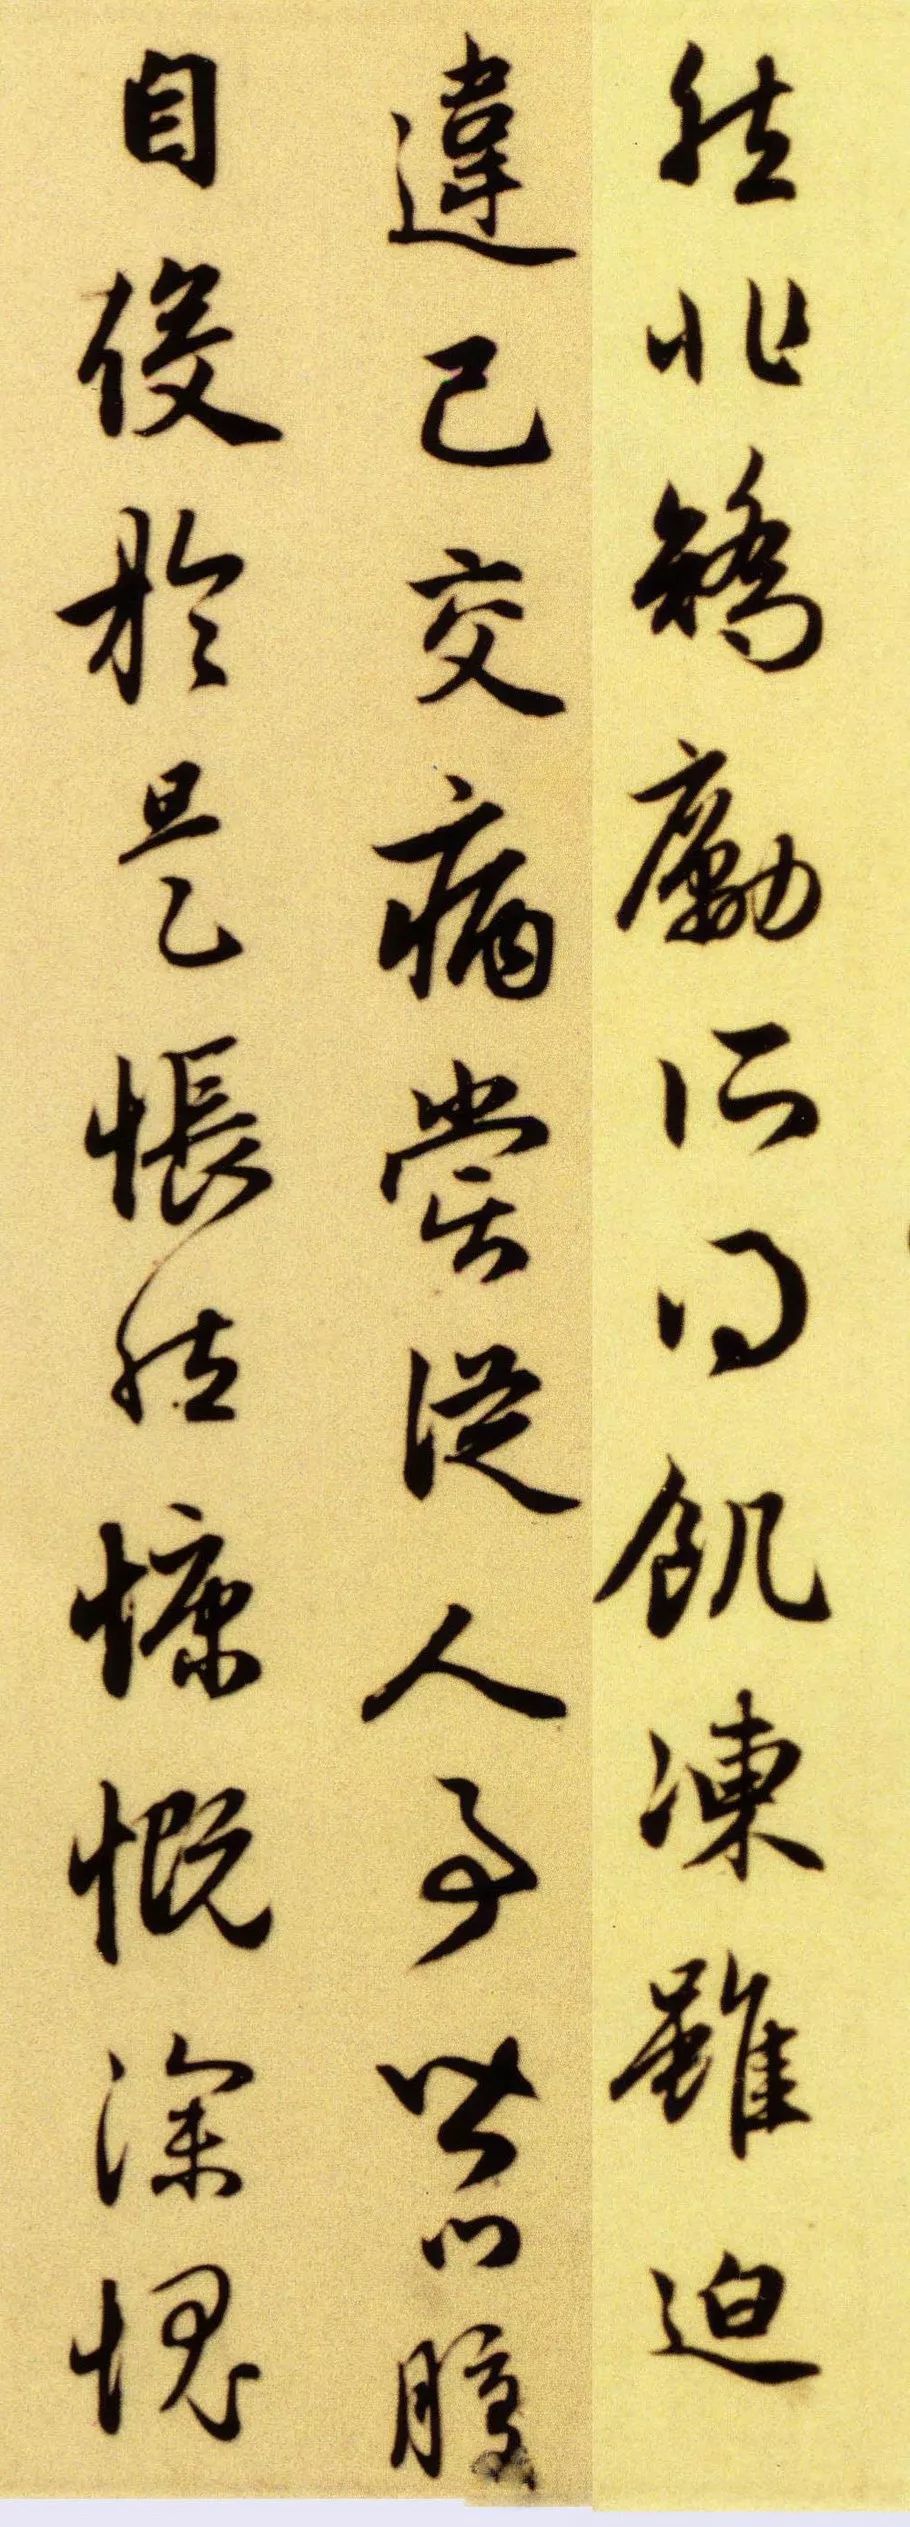 然非矯勵所得飢凍雖迫
違己交病嘗從人事皆口腹
自役於是悵然慷慨深愧